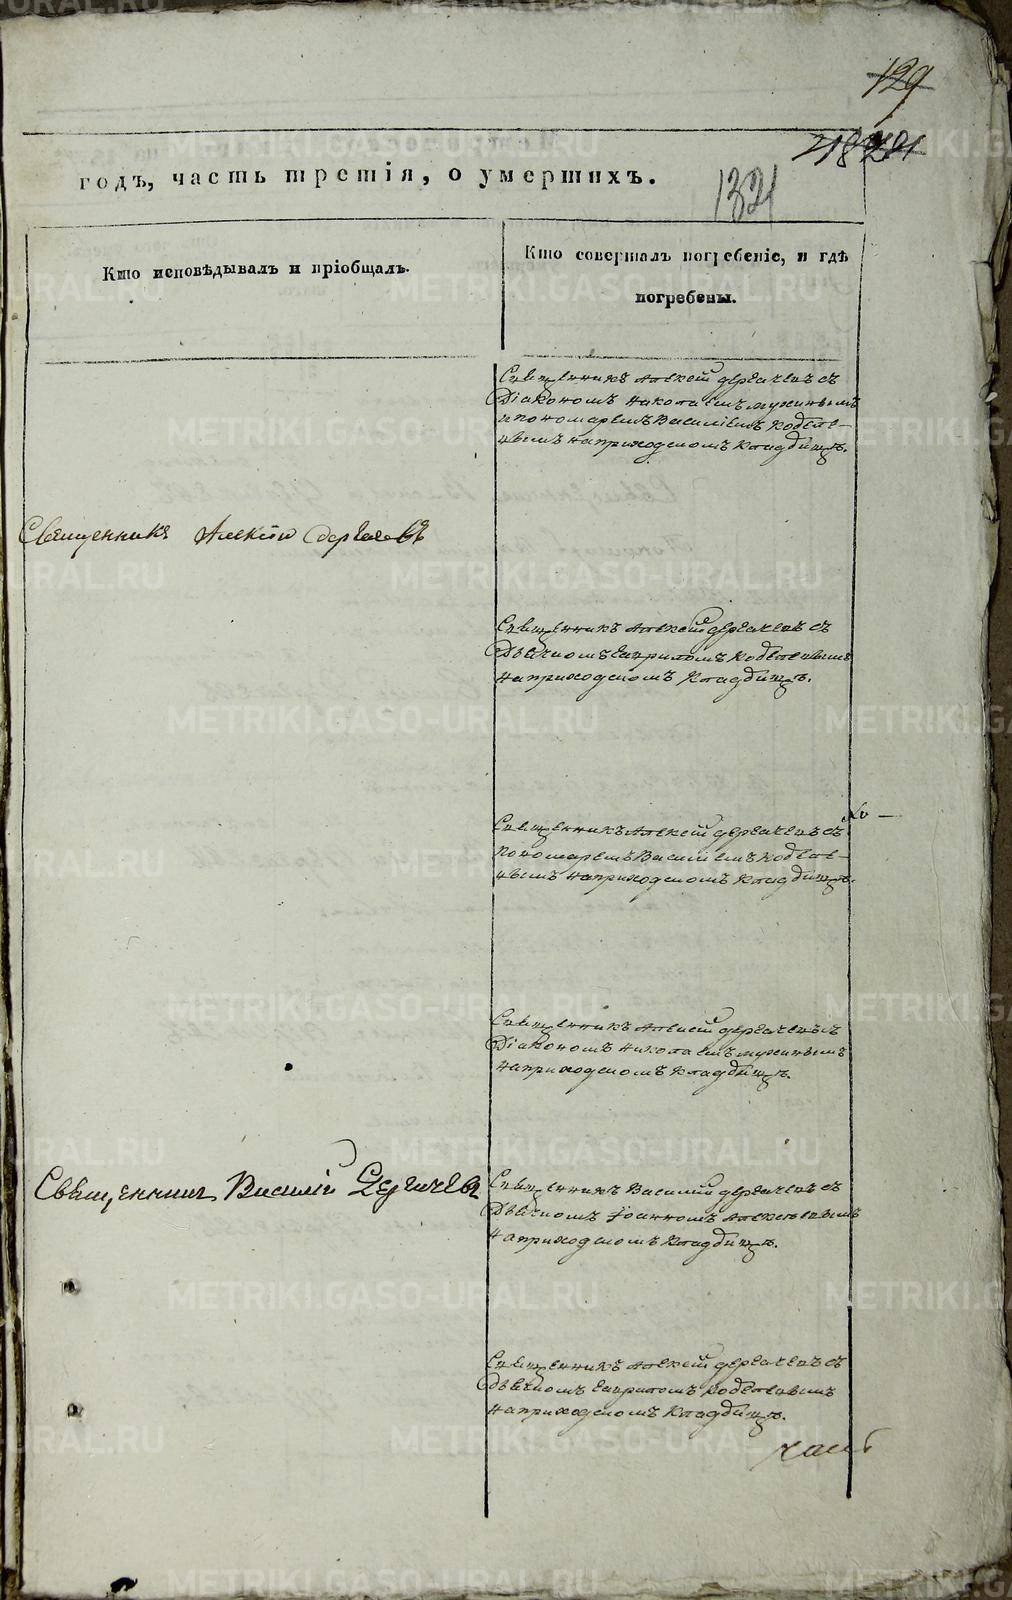 129
годъ, часть третія, о умершихъ.
132
Кто исповѣдывалъ и пріобщалъ.
Кто совершалъ погребеніе, и гдѣ
погребены.
Священникъ Алексей Дергачевъ съ
Діакономъ Николаемъ
и пономаремъ Василіемъ Кобеле-
вымъ наприходскомъ Кладбищѣ.
Священникъ Алексій Дергачевъ
Священникъ Алексей Дергачевъ съ
Дьячкомъ Гавриломъ Кобелевымъ
наприходскомъ Кладбищѣ.
Священникъ Алексей Дергачевъ съ
пономаремъ Василіемъ Кобеле-
вымъ наприходскомъ Кладбищѣ.
Священникъ Алексей Дергачевъ съ
Діакономъ Николаемъ
наприходскомъ Кладбищѣ.
Священникъ Василій Дергачевъ
Священникъ Василій Дергачевъ съ
Дьячкомъ Іоанномъ Алексѣевымъ
наприходскомъ Кладбищѣ.
Священникъ Алексей Дергачевъ съ
Дьячкомъ Гавриломъ Кобелевымъ
наприходскомъ Кладбищѣ.
METRIKI.GASO-URAL.RU